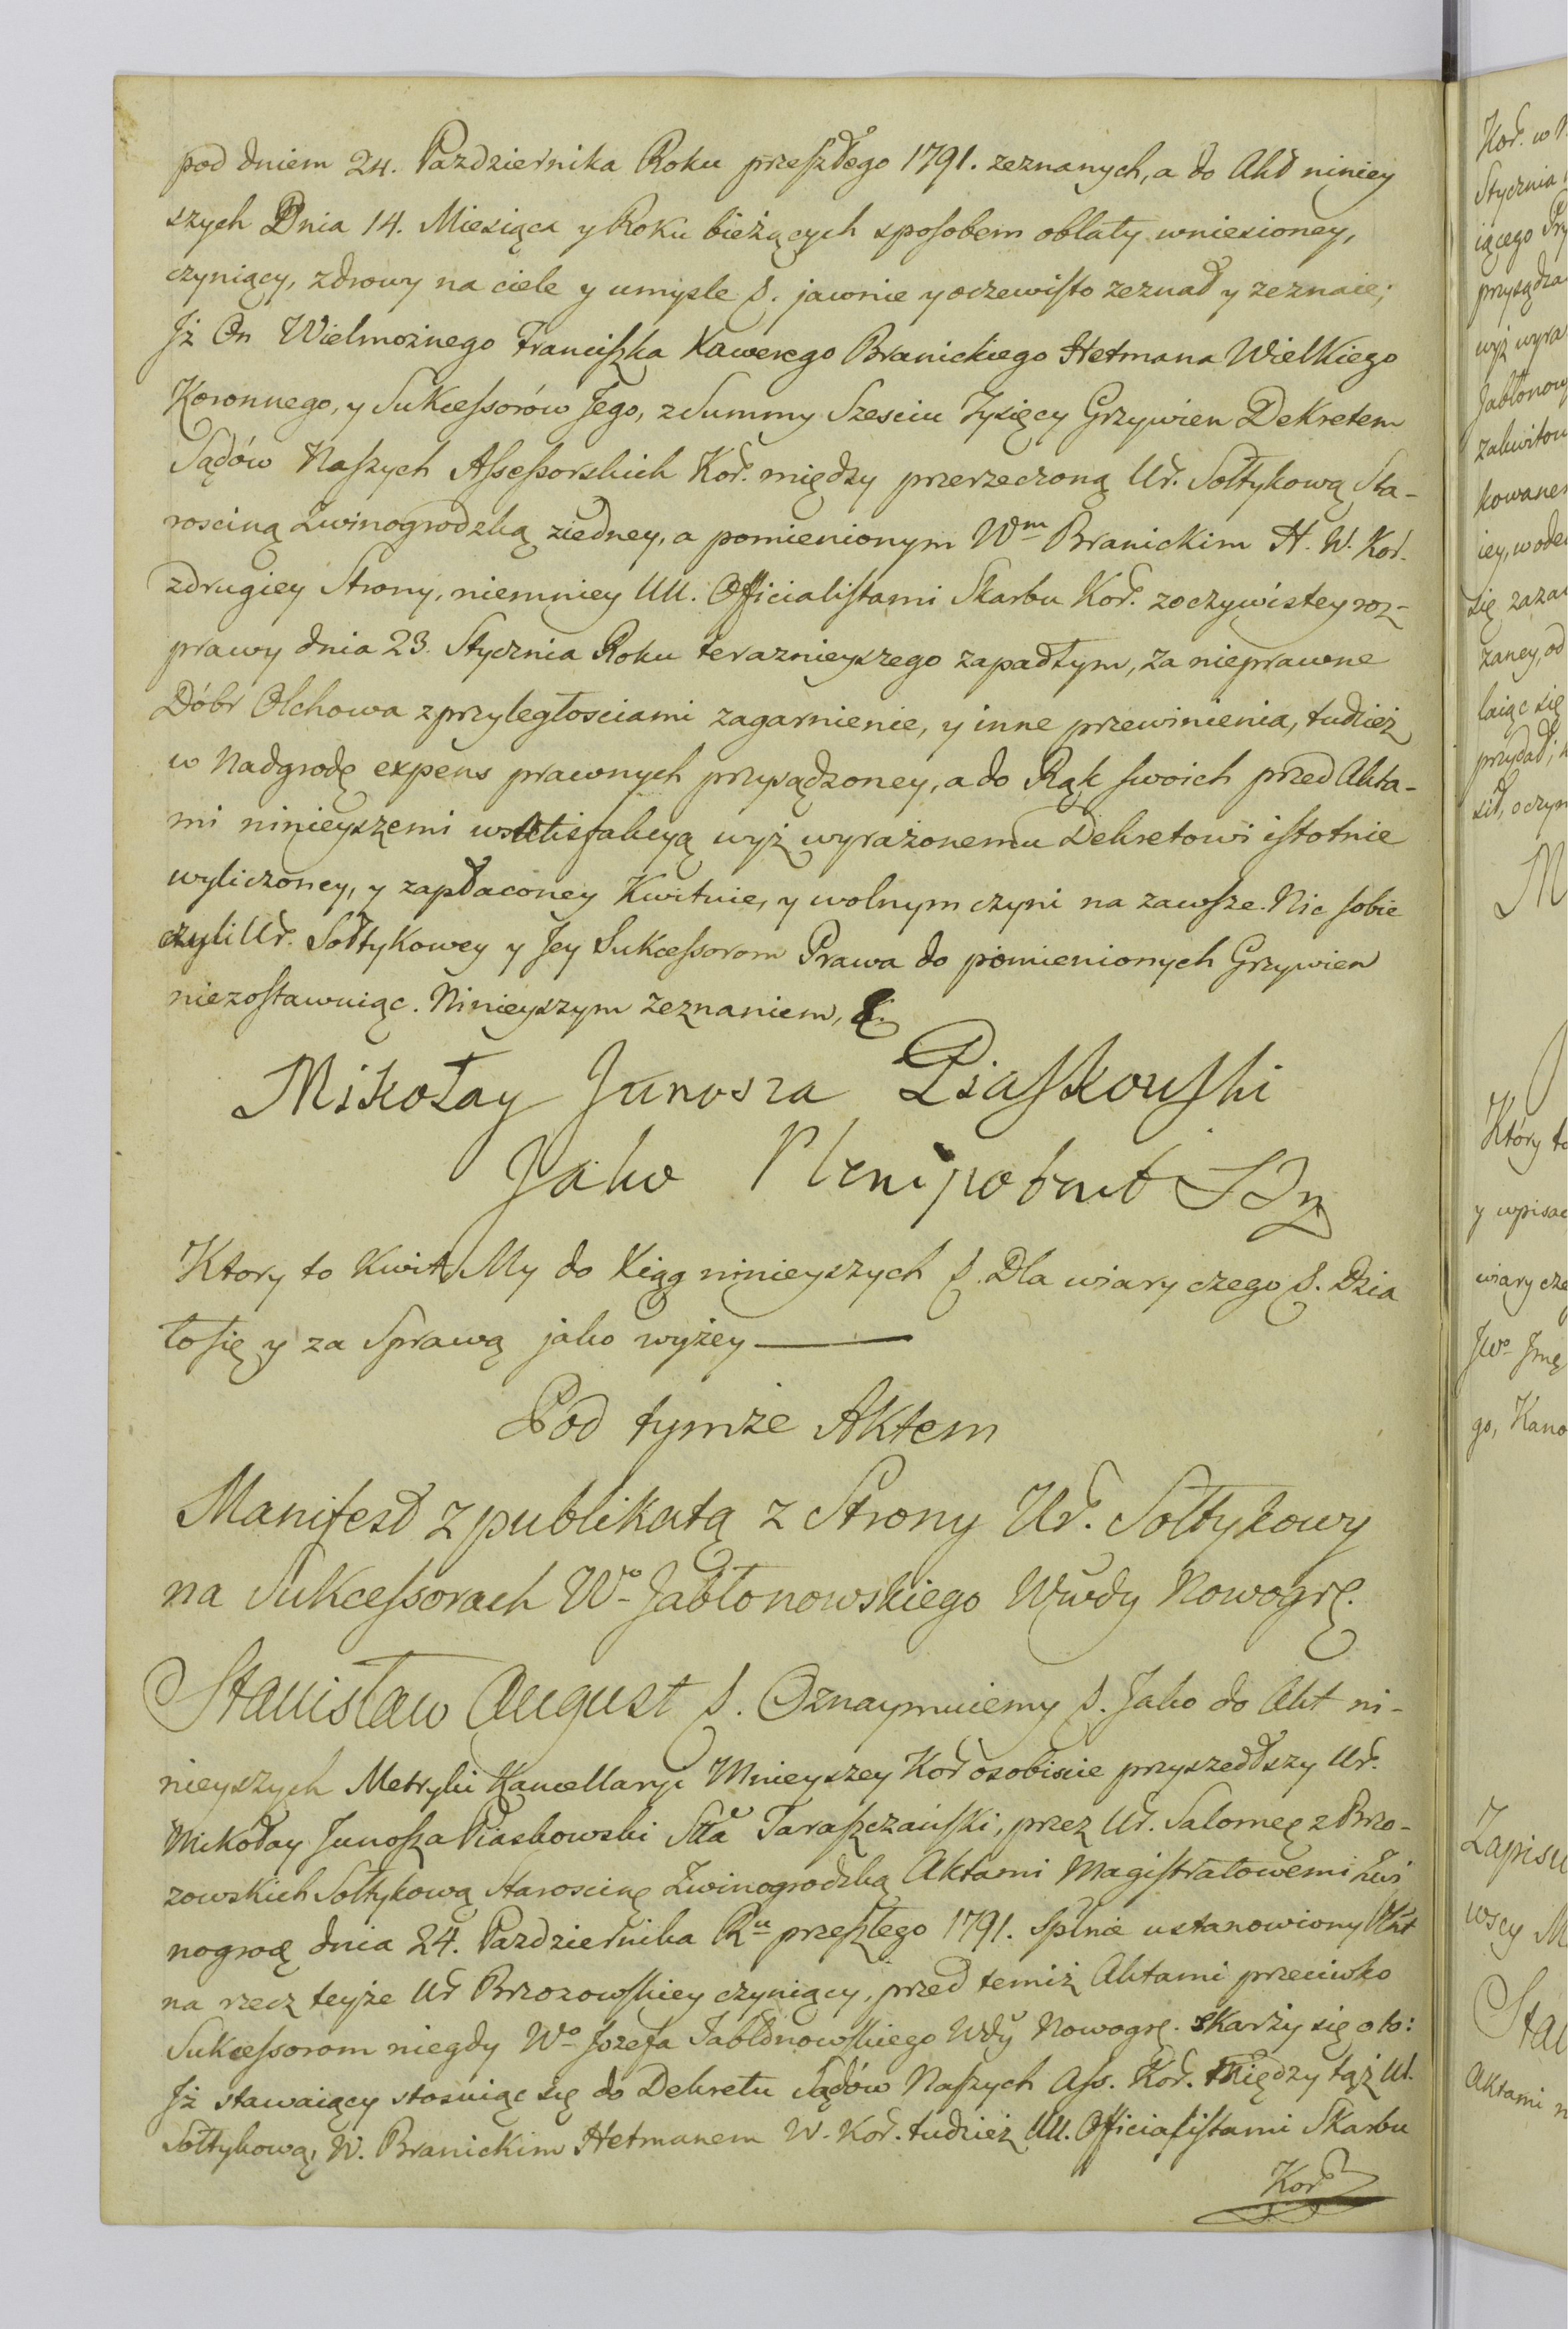 pod dniem 24. Pazdziernika Roku przeszłego 1791. zeznanych, a do Akt niniey
szych Dnia 14. Miesiąca y Roku bieżących sposobem oblaty wniesioney,
czyniący, zdrowy na ciele y umysle &. jawnie y oczewisto zeznał y zeznaie;
Jż On Wielmożnego Franciszka Xawerego Branickiego Hetmana Wielkiego
Koronnego, y Sukcessorów Jego, z Summy Szesciu Tysięcy Grzywien Dekretem
Sądów Naszych Assessorskich Kor. między przerzeczoną Ur. Sołtykową Sta-
rosciną Zwinogrodzką ziedney, a pomienionym Wm Branickim H. W. Kor.
zdrugiey Strony, niemniey UU. Officialistami Skarbu Kor. zoczywistey roz-
prawy dnia 23. Stycznia Roku teraznieyszego zapadłym, za nieprawne
Dóbr Olchowa z przyległosciami zagarnienie, y inne przewinienia, tudzież
w Nadgrodę expens prawnych przysądzoney, a do Rąk swoich przed Akta-
mi ninieyszemi wsatisfakcyą wyż wyrażonemu Dekretowi istotnie
wyliczoney, y zapłaconey Kwituie, y wolnym czyni na zawsze. Nic sobie
czyli Ur. Sołtykowey y Jey Sukcessorom Prawa do pomienionych Grzywien
niezostawuiąc. Ninieyszym zeznaniem, &.
Mikołay Junosza Piaskowski
Jako Plenipotent
Ktory to Kwit My do Xiąg ninieyszych &. Dla wiary czego &. Dzia
ło się y za Sprawą jako wyżey
Pod tymże Aktem
Manifest z publikatą z Strony Ur. Sołtykowy
na Sukcessorach Wo Jabłonowskiego Wwdy Nowogr.
Stanisław August &. Oznaymuiemy &. Jako do Akt ni-
nieyszych Metryki Kancellaryi Mnieyszey Kor osobiscie przyszedłszy Ur.
Mikołay Junosza Piaskowski Stta Taraszczański, przez Ur. Salomeę z Brzo-
zowskich Sołtykową Staroscinę Zwinogrodzką Aktami Magistratowemi Zwi
nogrod dnia 24. Pazdziernika Ru przeszłego 1791. splnie ustanowiony Plnt
na rzecz teyże Ur Brzozowskiey czyniący, przed temiż Aktami przeciwko
Sukcessorom niegdy Wo Jozefa Jabłonowskiego Wdy Nowogr. skarży się o to:
Jż stawaiący stosuiąc się do Dekretu Sądów Naszych Ass. Kor. między tąż Ur.
Sołtykową, W. Branickim Hetmanem W. Kor. tudzież UU. Officialistami Skarbu
Kor
Kor. w
Stycznia
iącego
przysądza
wyż wyra
Jabłonow
zakwitow
kowane
iey, w ode
się zaza
zaney, od
laiąc się
przydał;
sił, o czym
M
Ktory to
y wpisać
wiary cze
JWo Jmę
go, Kano
Zapisu
wscy M
Sta
Aktami n